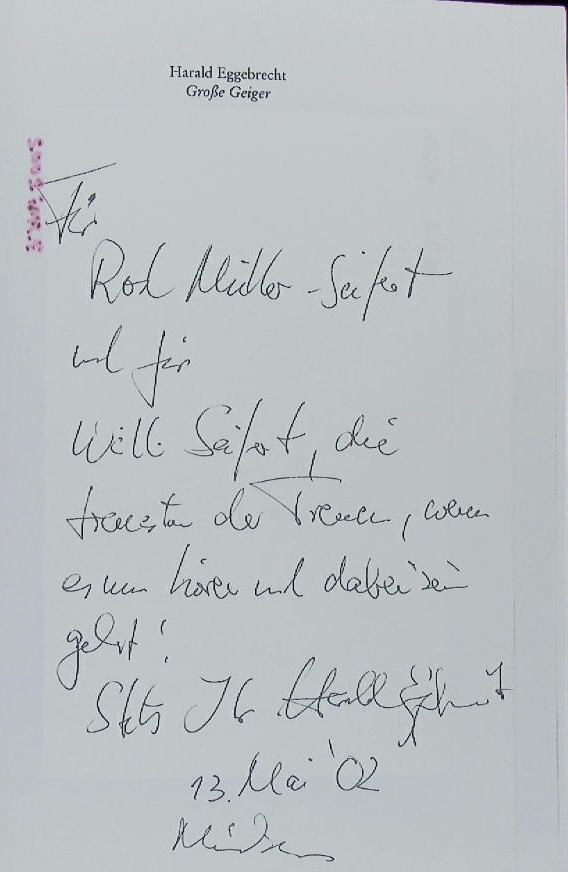 Harald Eggebrecht
Große Geiger
Für
Müller-Seifert
und für
Willi Seifert, die
treuesten der Treuen, wenn
es um hören und dabei sein
geht!
Stets Ihr Harald Eggebrecht
13. Mai '02
München